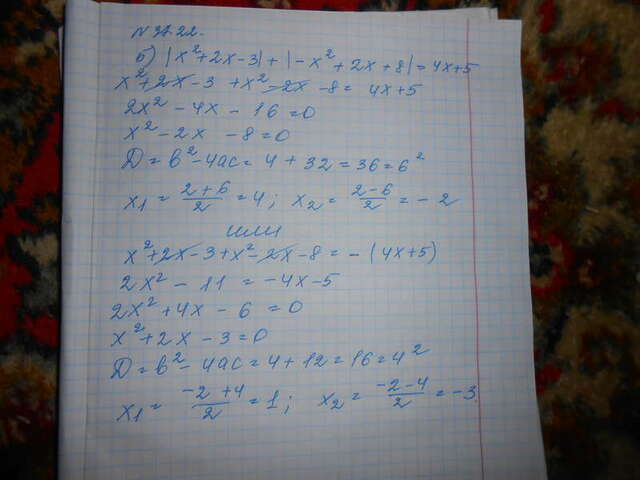 N 37.22.
б) |x²+2x-3| + |-x²+2x+8| = 4x+5
x²+2x-3+x²-2x-8 = 4x+5
2x²-4x-16=0
x²-2x-8=0
Д=в²-4ас=4+32=36=6²
x₁=(2+6)/2=4; x₂=(2-6)/2=-2
или
x²+2x-3+x²-2x-8=-(4x+5)
2x²-11=-4x-5
2x²+4x-6=0
x²+2x-3=0
Д=в²-4ас=4+12=16=4²
x₁=(-2+4)/2=1; x₂=(-2-4)/2=-3.